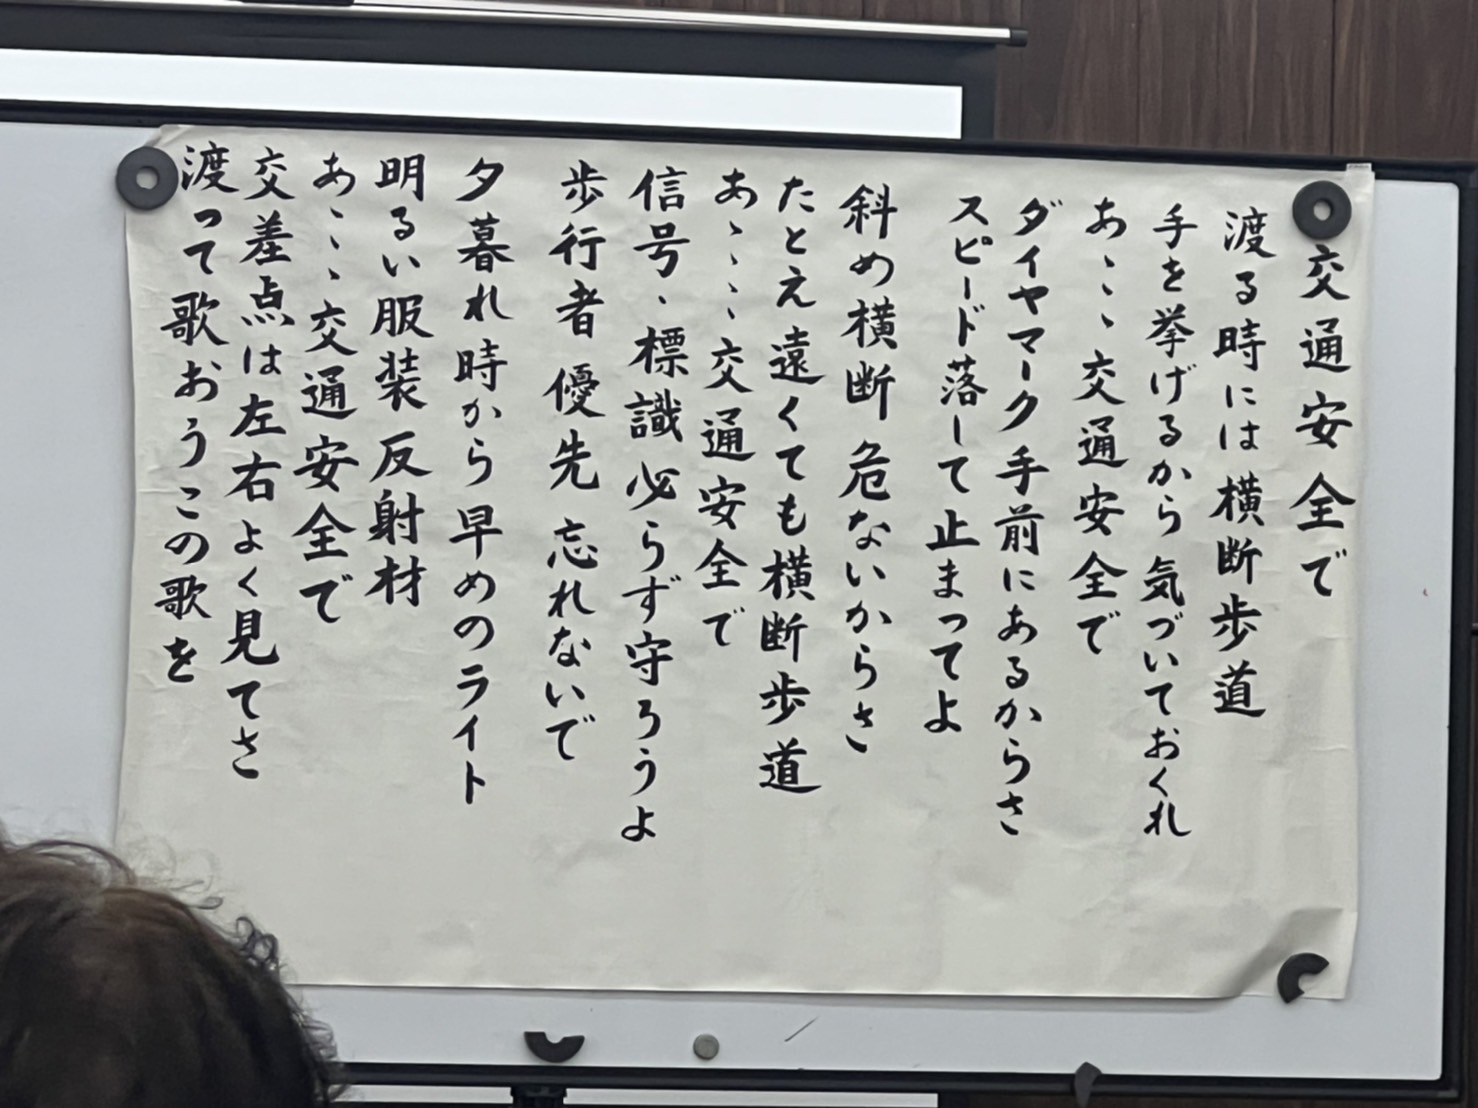 交通安全で
渡る時には横断歩道
手を挙げるから気づいておくれ
あゝゝゝ交通安全で
ダイヤマーク手前にあるからさ
スピード落して止まってよ
斜め横断 危ないからさ
たとえ遠くても横断歩道
あゝゝゝ交通安全で
信号、標識必らず守ろうよ
歩行者 優先 忘れないで
夕暮れ時から早めのライト
明るい服装 反射材
あゝゝゝ交通安全で
交差点は左右よく見てさ
渡って歌おうこの歌を